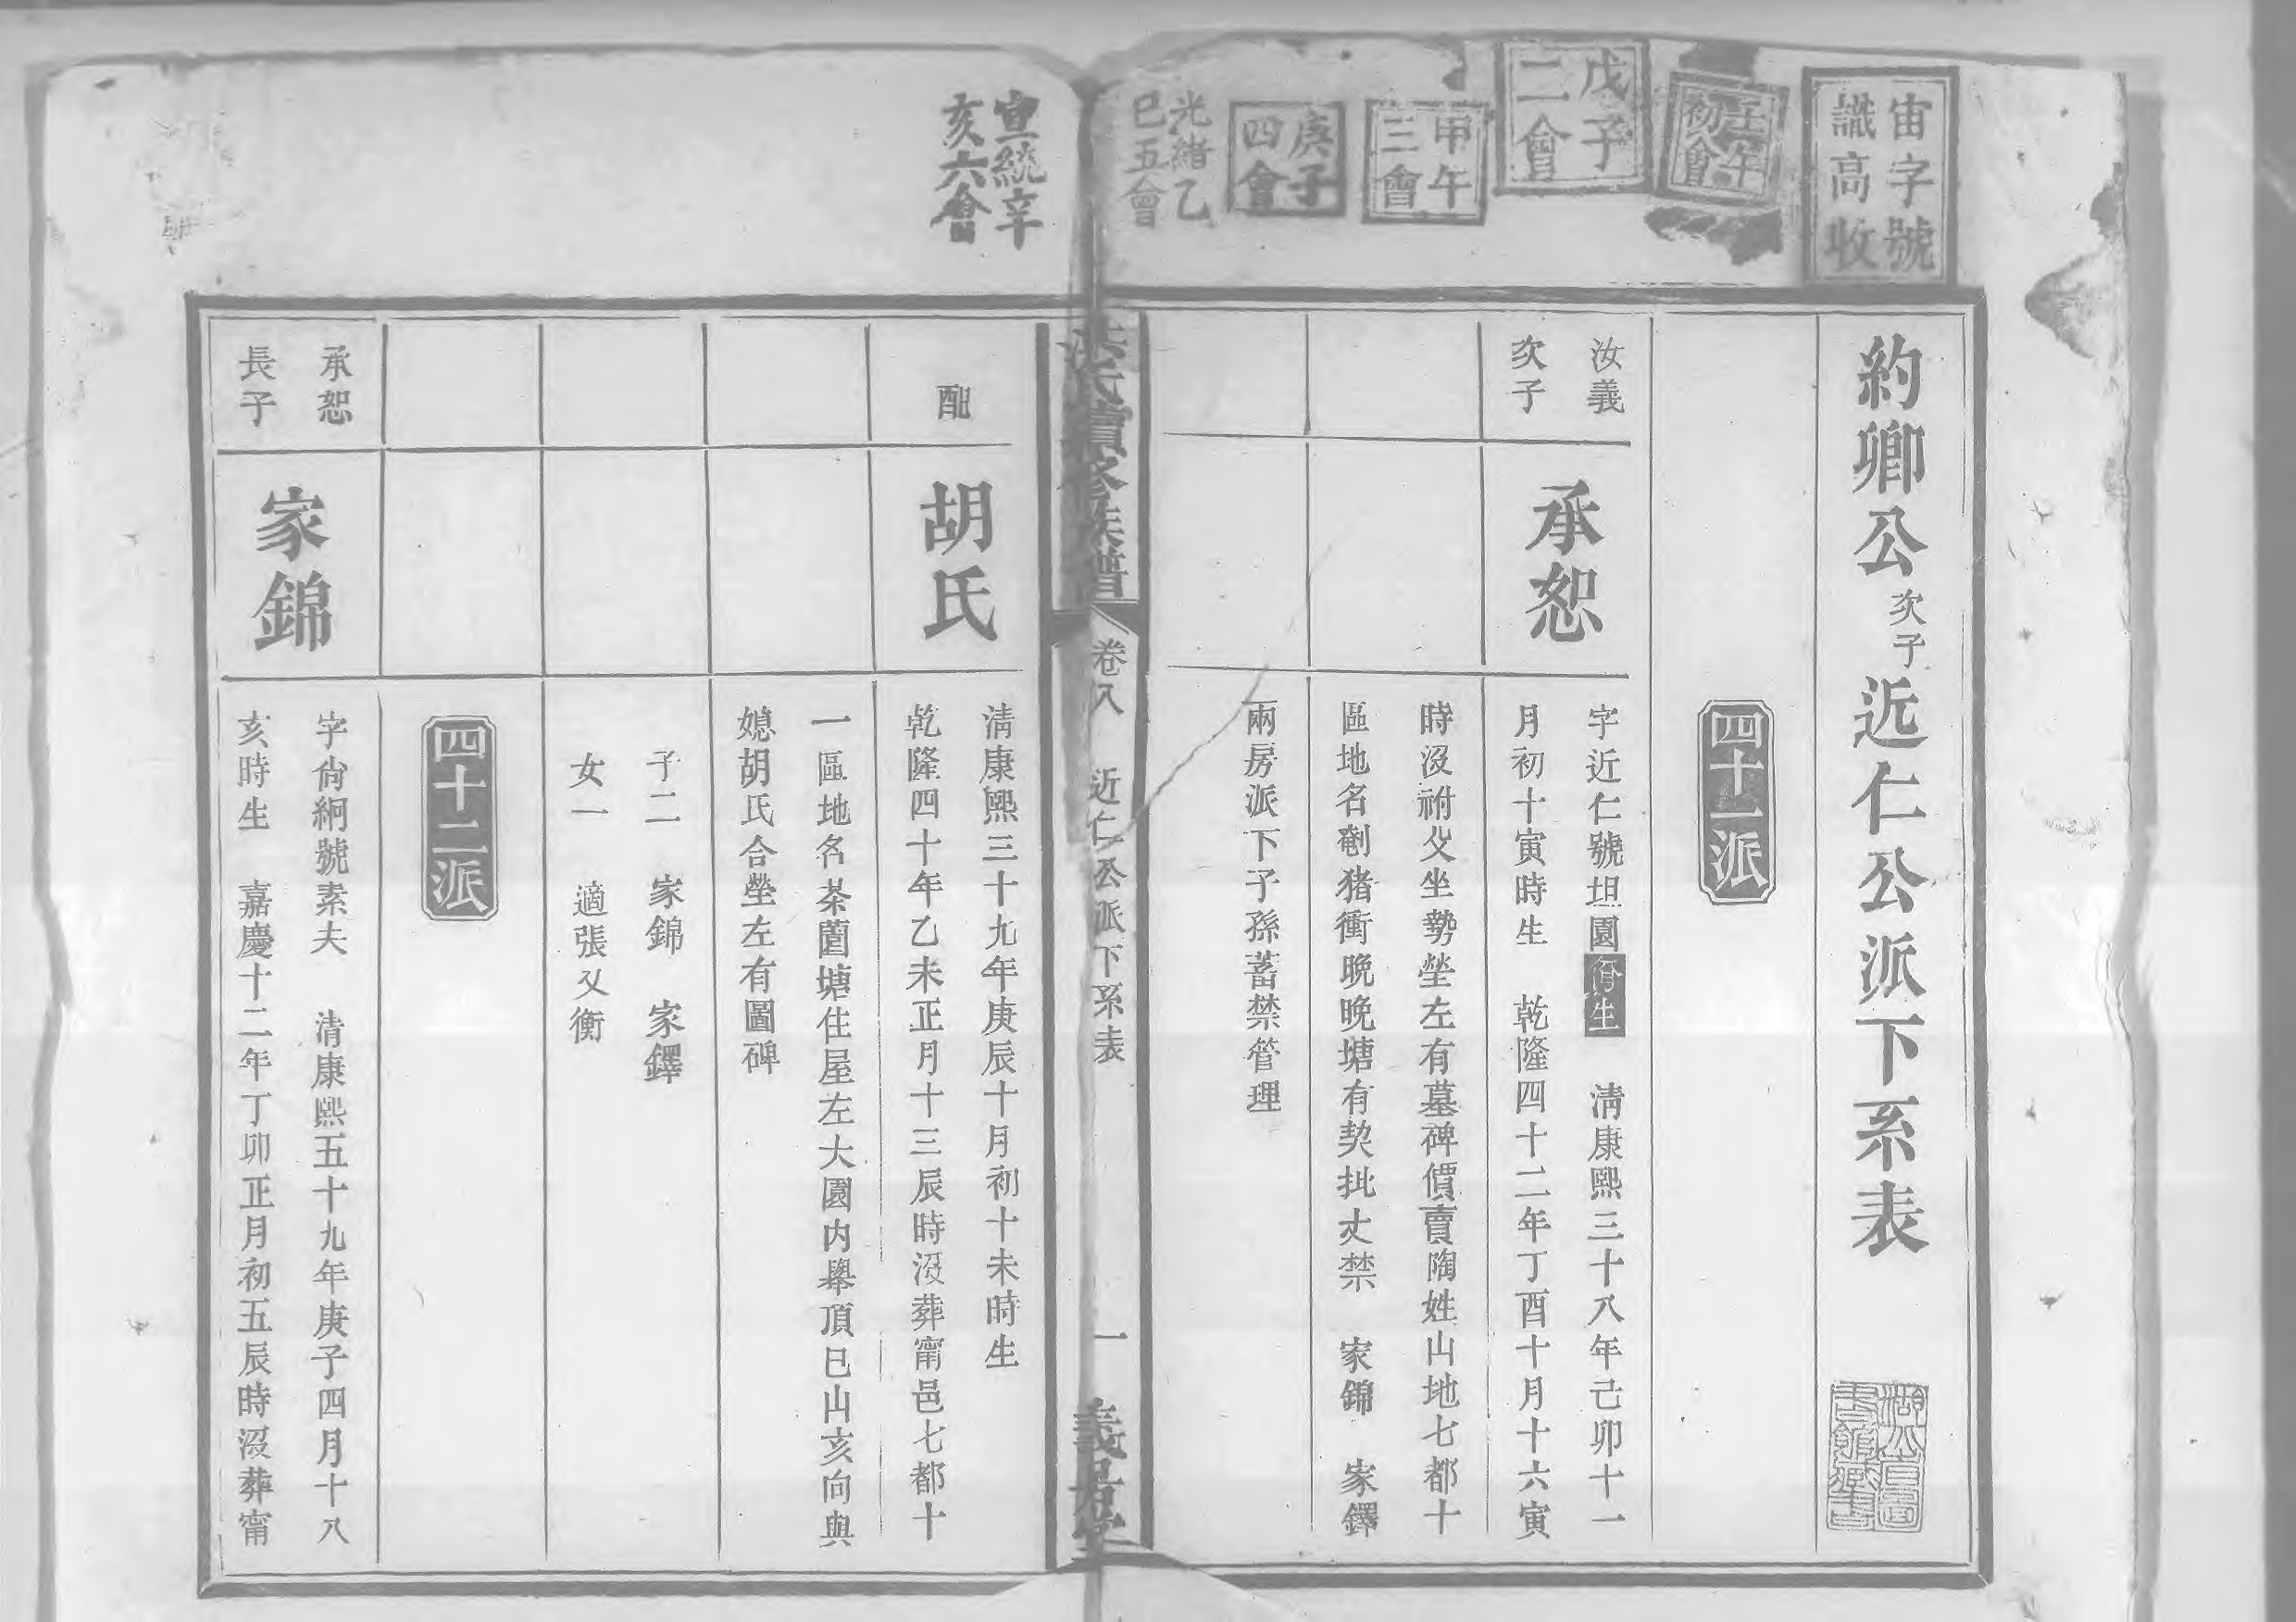 宙字號
識高收
壬午
初會
戊子
二會
甲午
三會
庚子
四會
光緒乙
巳五會
宣統辛
亥六會
約卿公次子近仁公派下系表
四十一派
汝義
次子
承恕
字近仁號坦園眘生 淸康熙三十八年己卯十一
月初十寅時生 乾隆四十二年丁酉十月十六寅
時沒祔父坐勢塋左有墓碑價賣陶姓山地七都十
區地名劁猪衝晚晚塘有契批丈禁 家錦 家鐸
兩房派下子孫蓄禁管理
洪氏續修族譜
卷八 近仁公派下系表
一
義居堂
配
胡氏
淸康熙三十九年庚辰十月初十未時生
乾隆四十年乙未正月十三辰時沒葬甯邑七都十
一區地名茶園塘住屋左大園内舉頂巳山亥向與
媳胡氏合塋左有圖碑
子二 家錦 家鐸
女一 適張乂衡
四十二派
承恕
長子
家錦
字尙絅號素夫 清康熙五十九年庚子四月十八
亥時生 嘉慶十二年丁卯正月初五辰時沒葬甯